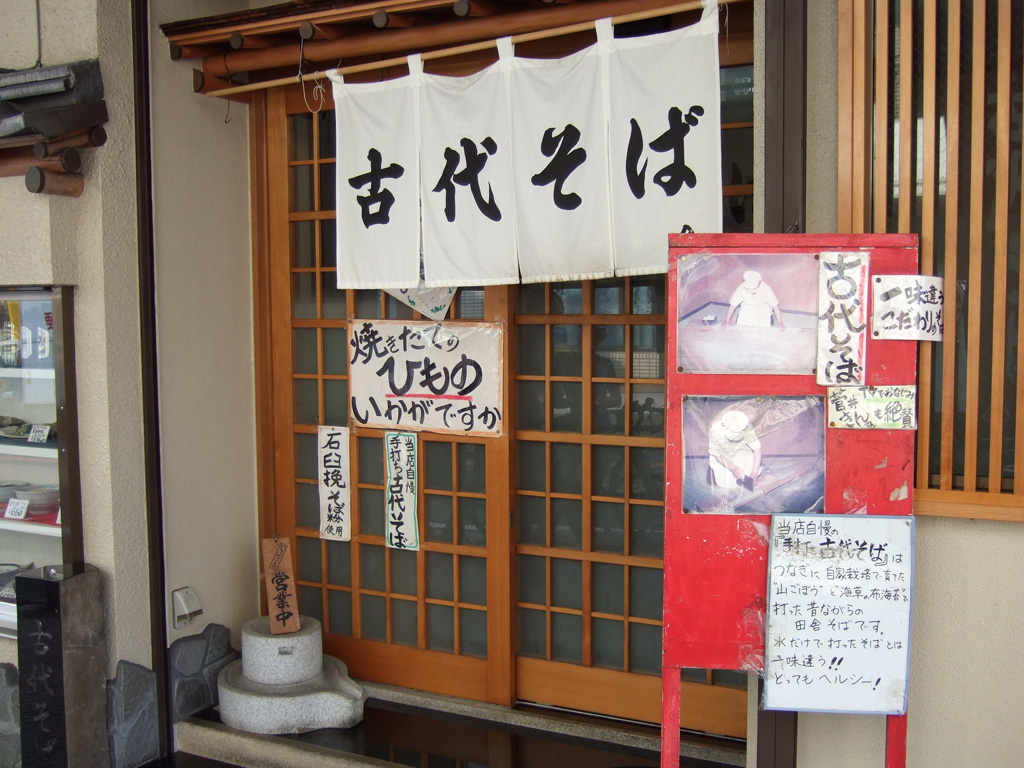 古代そば
焼きたての
ひもの
いかがですか
石臼挽そば粉使用
当店自慢
手打ち古代そば
営業中
古代そば
古代そば
一味違う
こだわりのそば
菅井さん
も絶賛
当店自慢の
『手打ち古代そば』は
つなぎに自家栽培で育てた
山ごぼうと海草の布海苔で
打った昔ながらの
田舎そばです。
水だけで打ったそばとは
一味違う!!
とってもヘルシー!